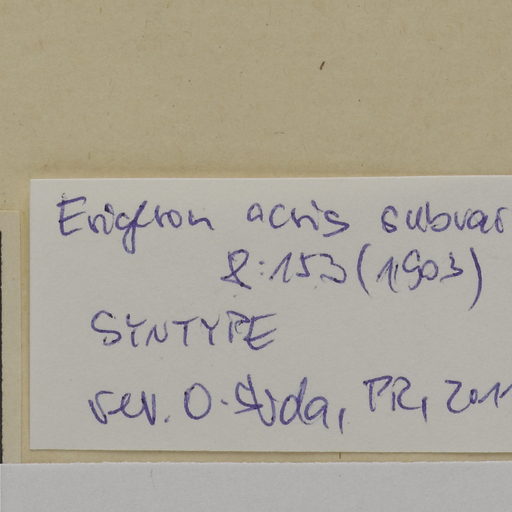 Erigeron acris subvar
8:153 (1903)
SYNTYPE
rev. O. Šída, PR, 2011